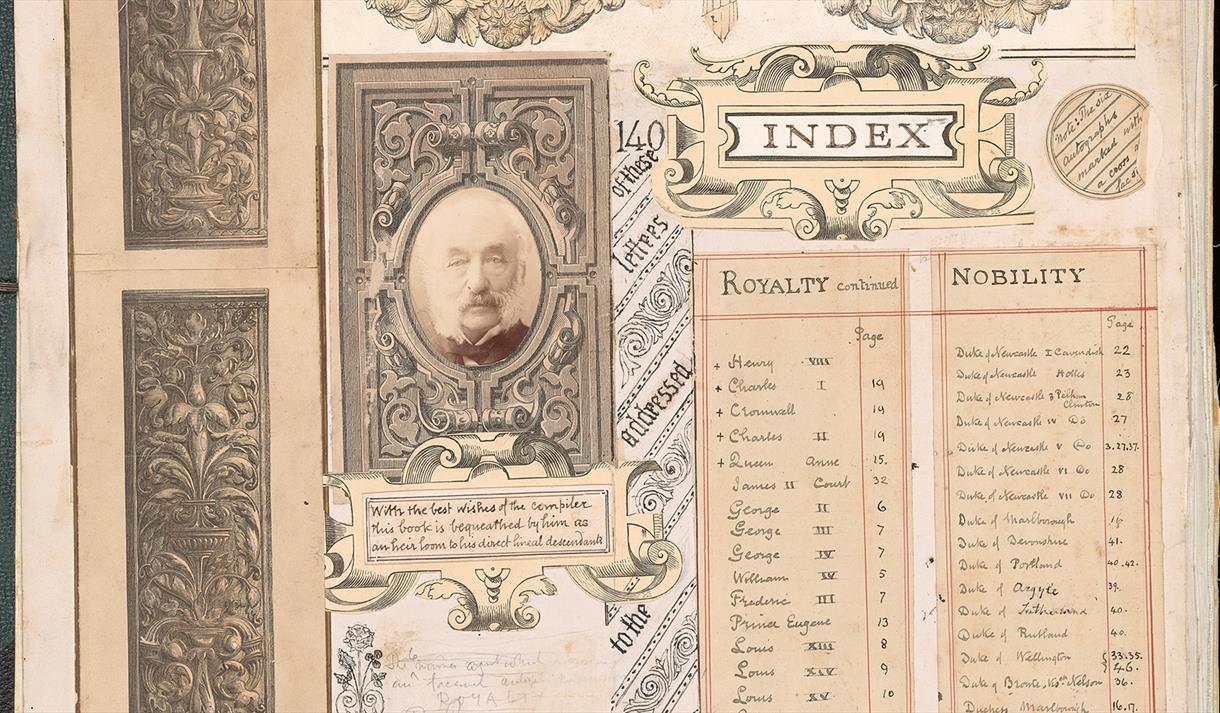 140
of these
letters
addressed
to the
INDEX
Note: The six
autographs
marked with
a cross
With the best wishes of the compiler
this book is bequeathed by him as
an heir loom to his direct lineal descendants
ROYALTY continued
Page
+ Henry VIII
+ Charles I 19
+ Cromwell 19
+ Charles II 19
+ Queen Anne 15.
James II Court 32
George II 6
George III 7
George IV 7
William IV 5
Frederic III 7
Prince Eugene 13
Louis XIII 8
Louis XIV 9
Louis XV 10
NOBILITY
Page
Duke of Newcastle I Cavendish 22
Duke of Newcastle Holles 23
Duke of Newcastle 3 Pelham Clinton 28
Duke of Newcastle IV Do 27
Duke of Newcastle V Do 3.27.37.
Duke of Newcastle VI Do 28
Duke of Newcastle VII Do 28
Duke of Marlborough
Duke of Devonshire 41.
Duke of Portland 40.42.
Duke of Argyle 39.
Duke of Sutherland 40.
Duke of Rutland 40.
Duke of Wellington { 33.35. 46.
Duke of Bronte, Visct Nelson 36.
Duchess Marlborough 16.17.
ROYALTY